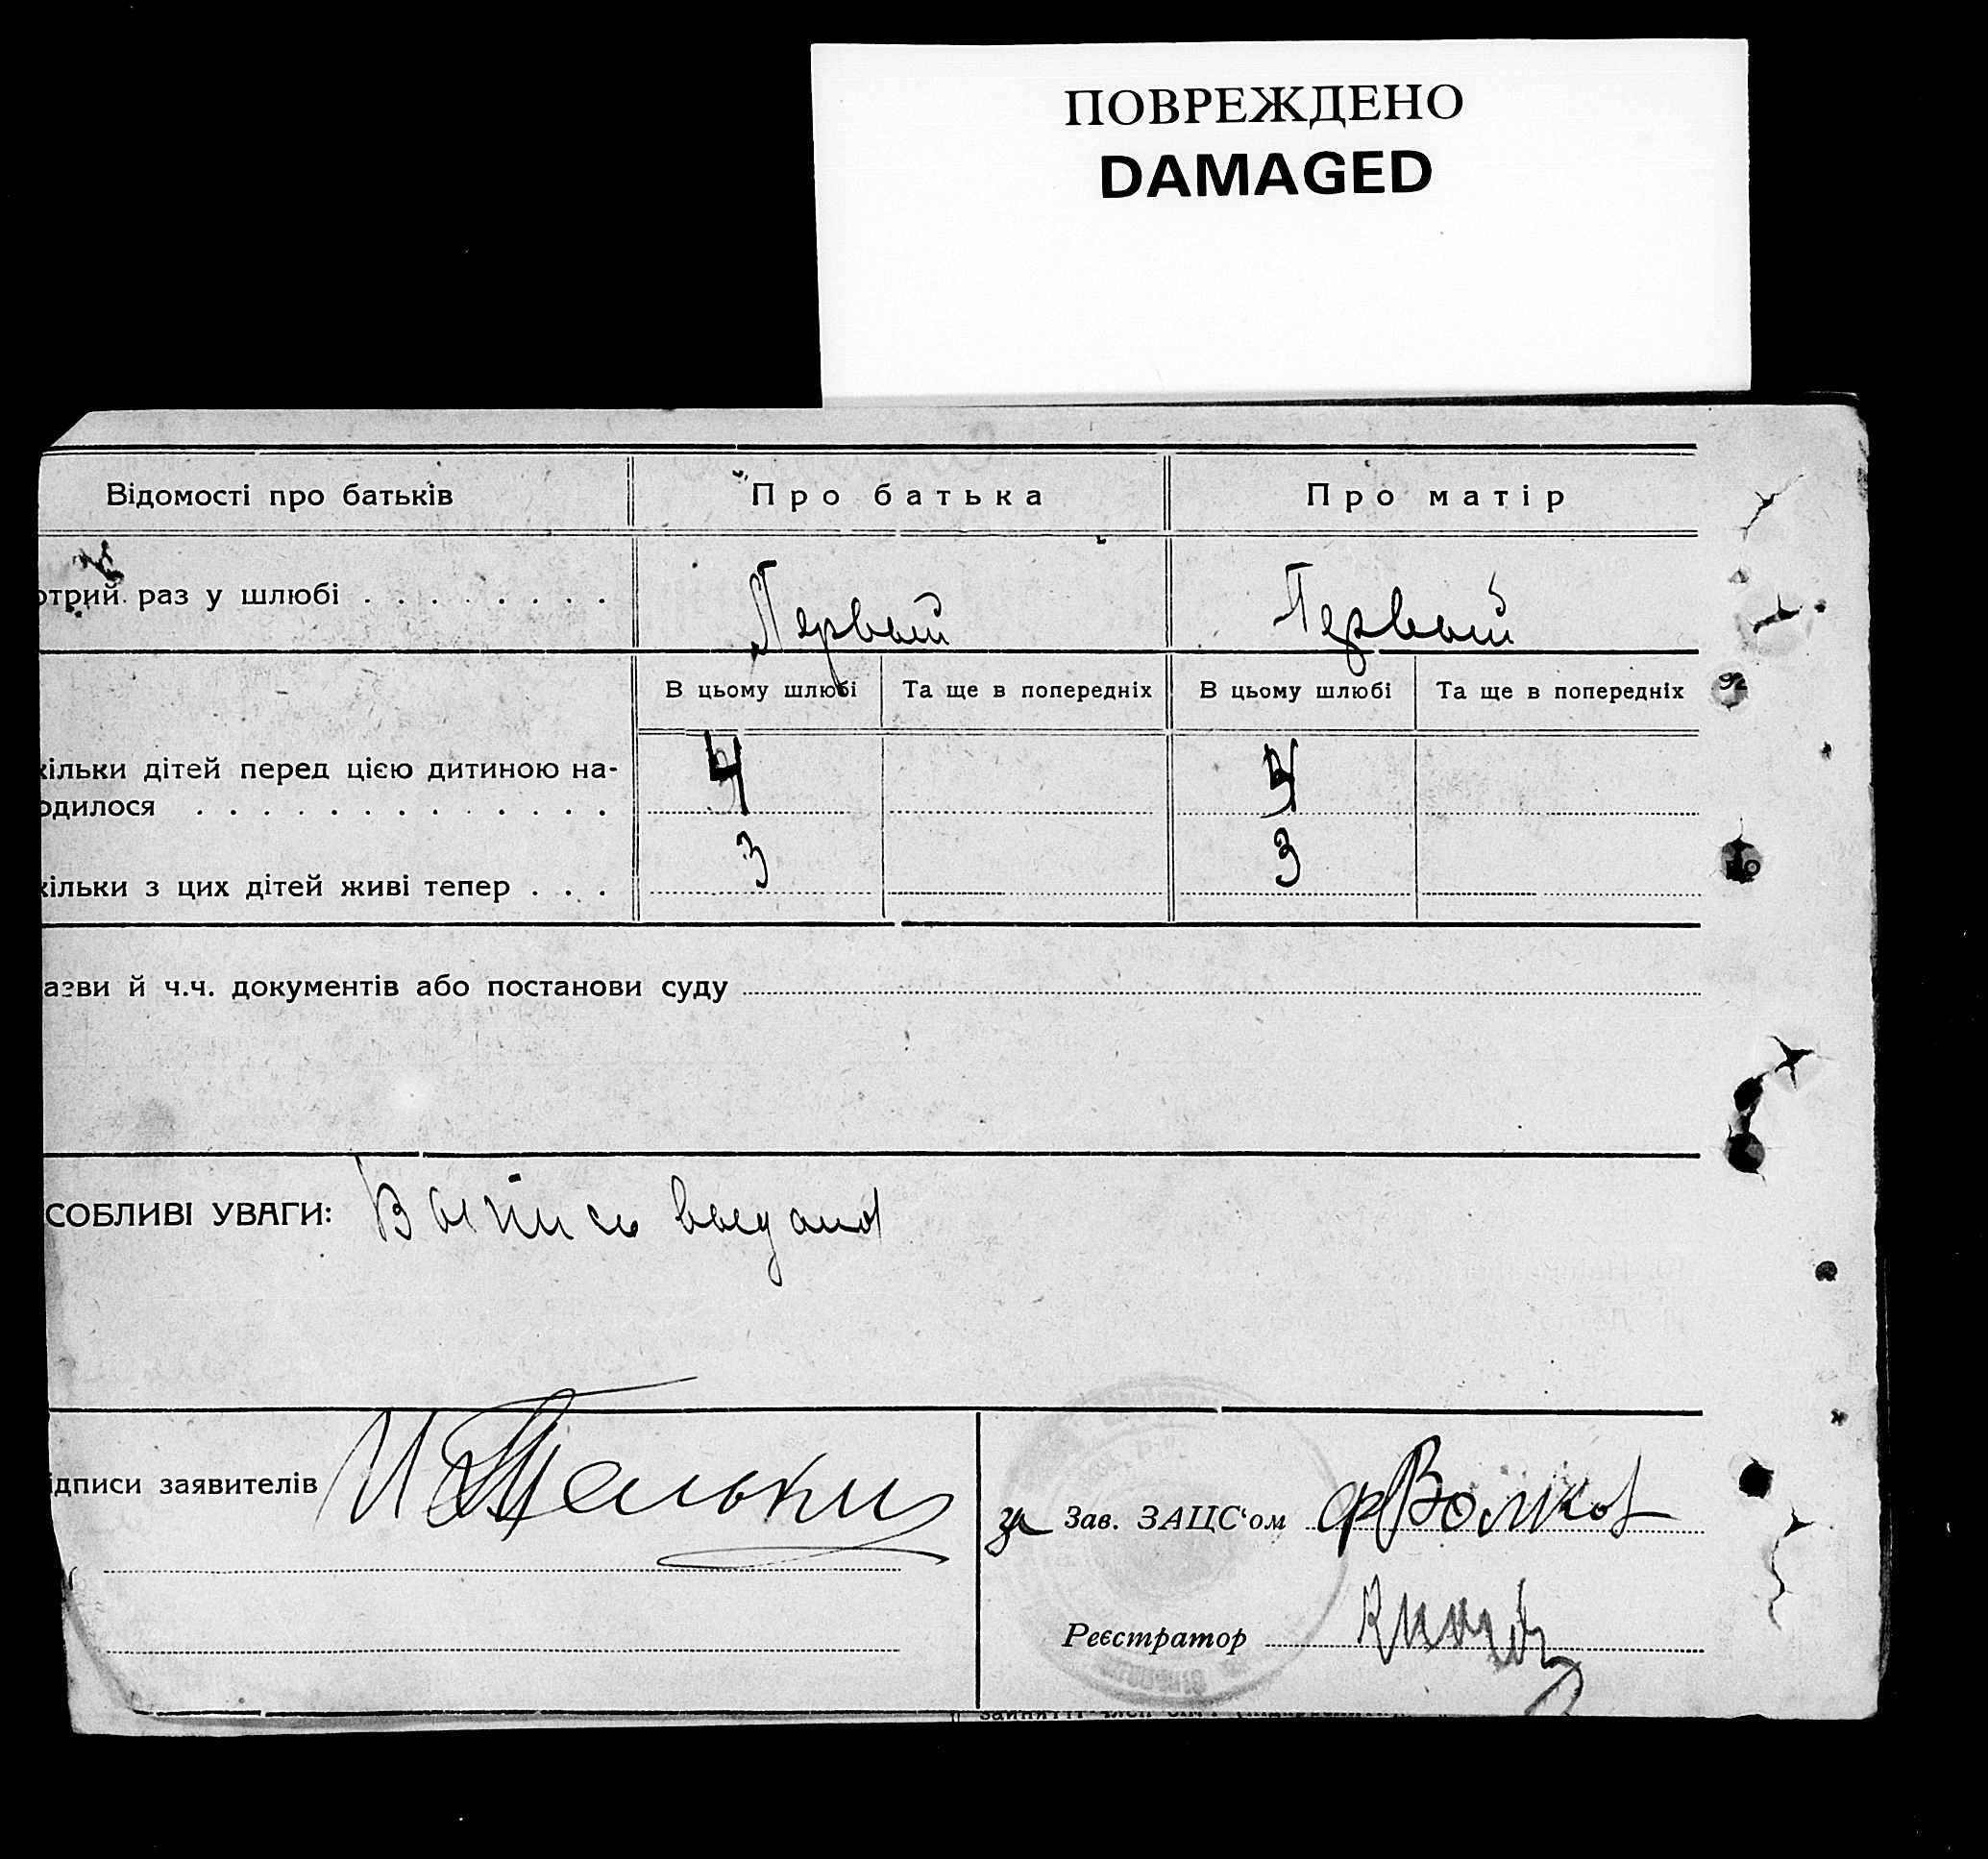 ПОВРЕЖДЕНО
DAMAGED
Відомості про батьків Про батька Про матір
отрий раз у шлюбі . . . . . . . . Первый Первый
В цьому шлюбі Та ще в попередніх В цьому шлюбі Та ще в попередніх
кільки дітей перед цією дитиною на-
одилося . . . . . . . . . . . . . 4 4
кільки з цих дітей живі тепер . . . 3 3
азви й ч.ч. документів або постанови суду
СОБЛИВІ УВАГИ: Выпись выдана
ідписи заявителів
за Зав. ЗАЦС‘ом Волков
Реєстратор